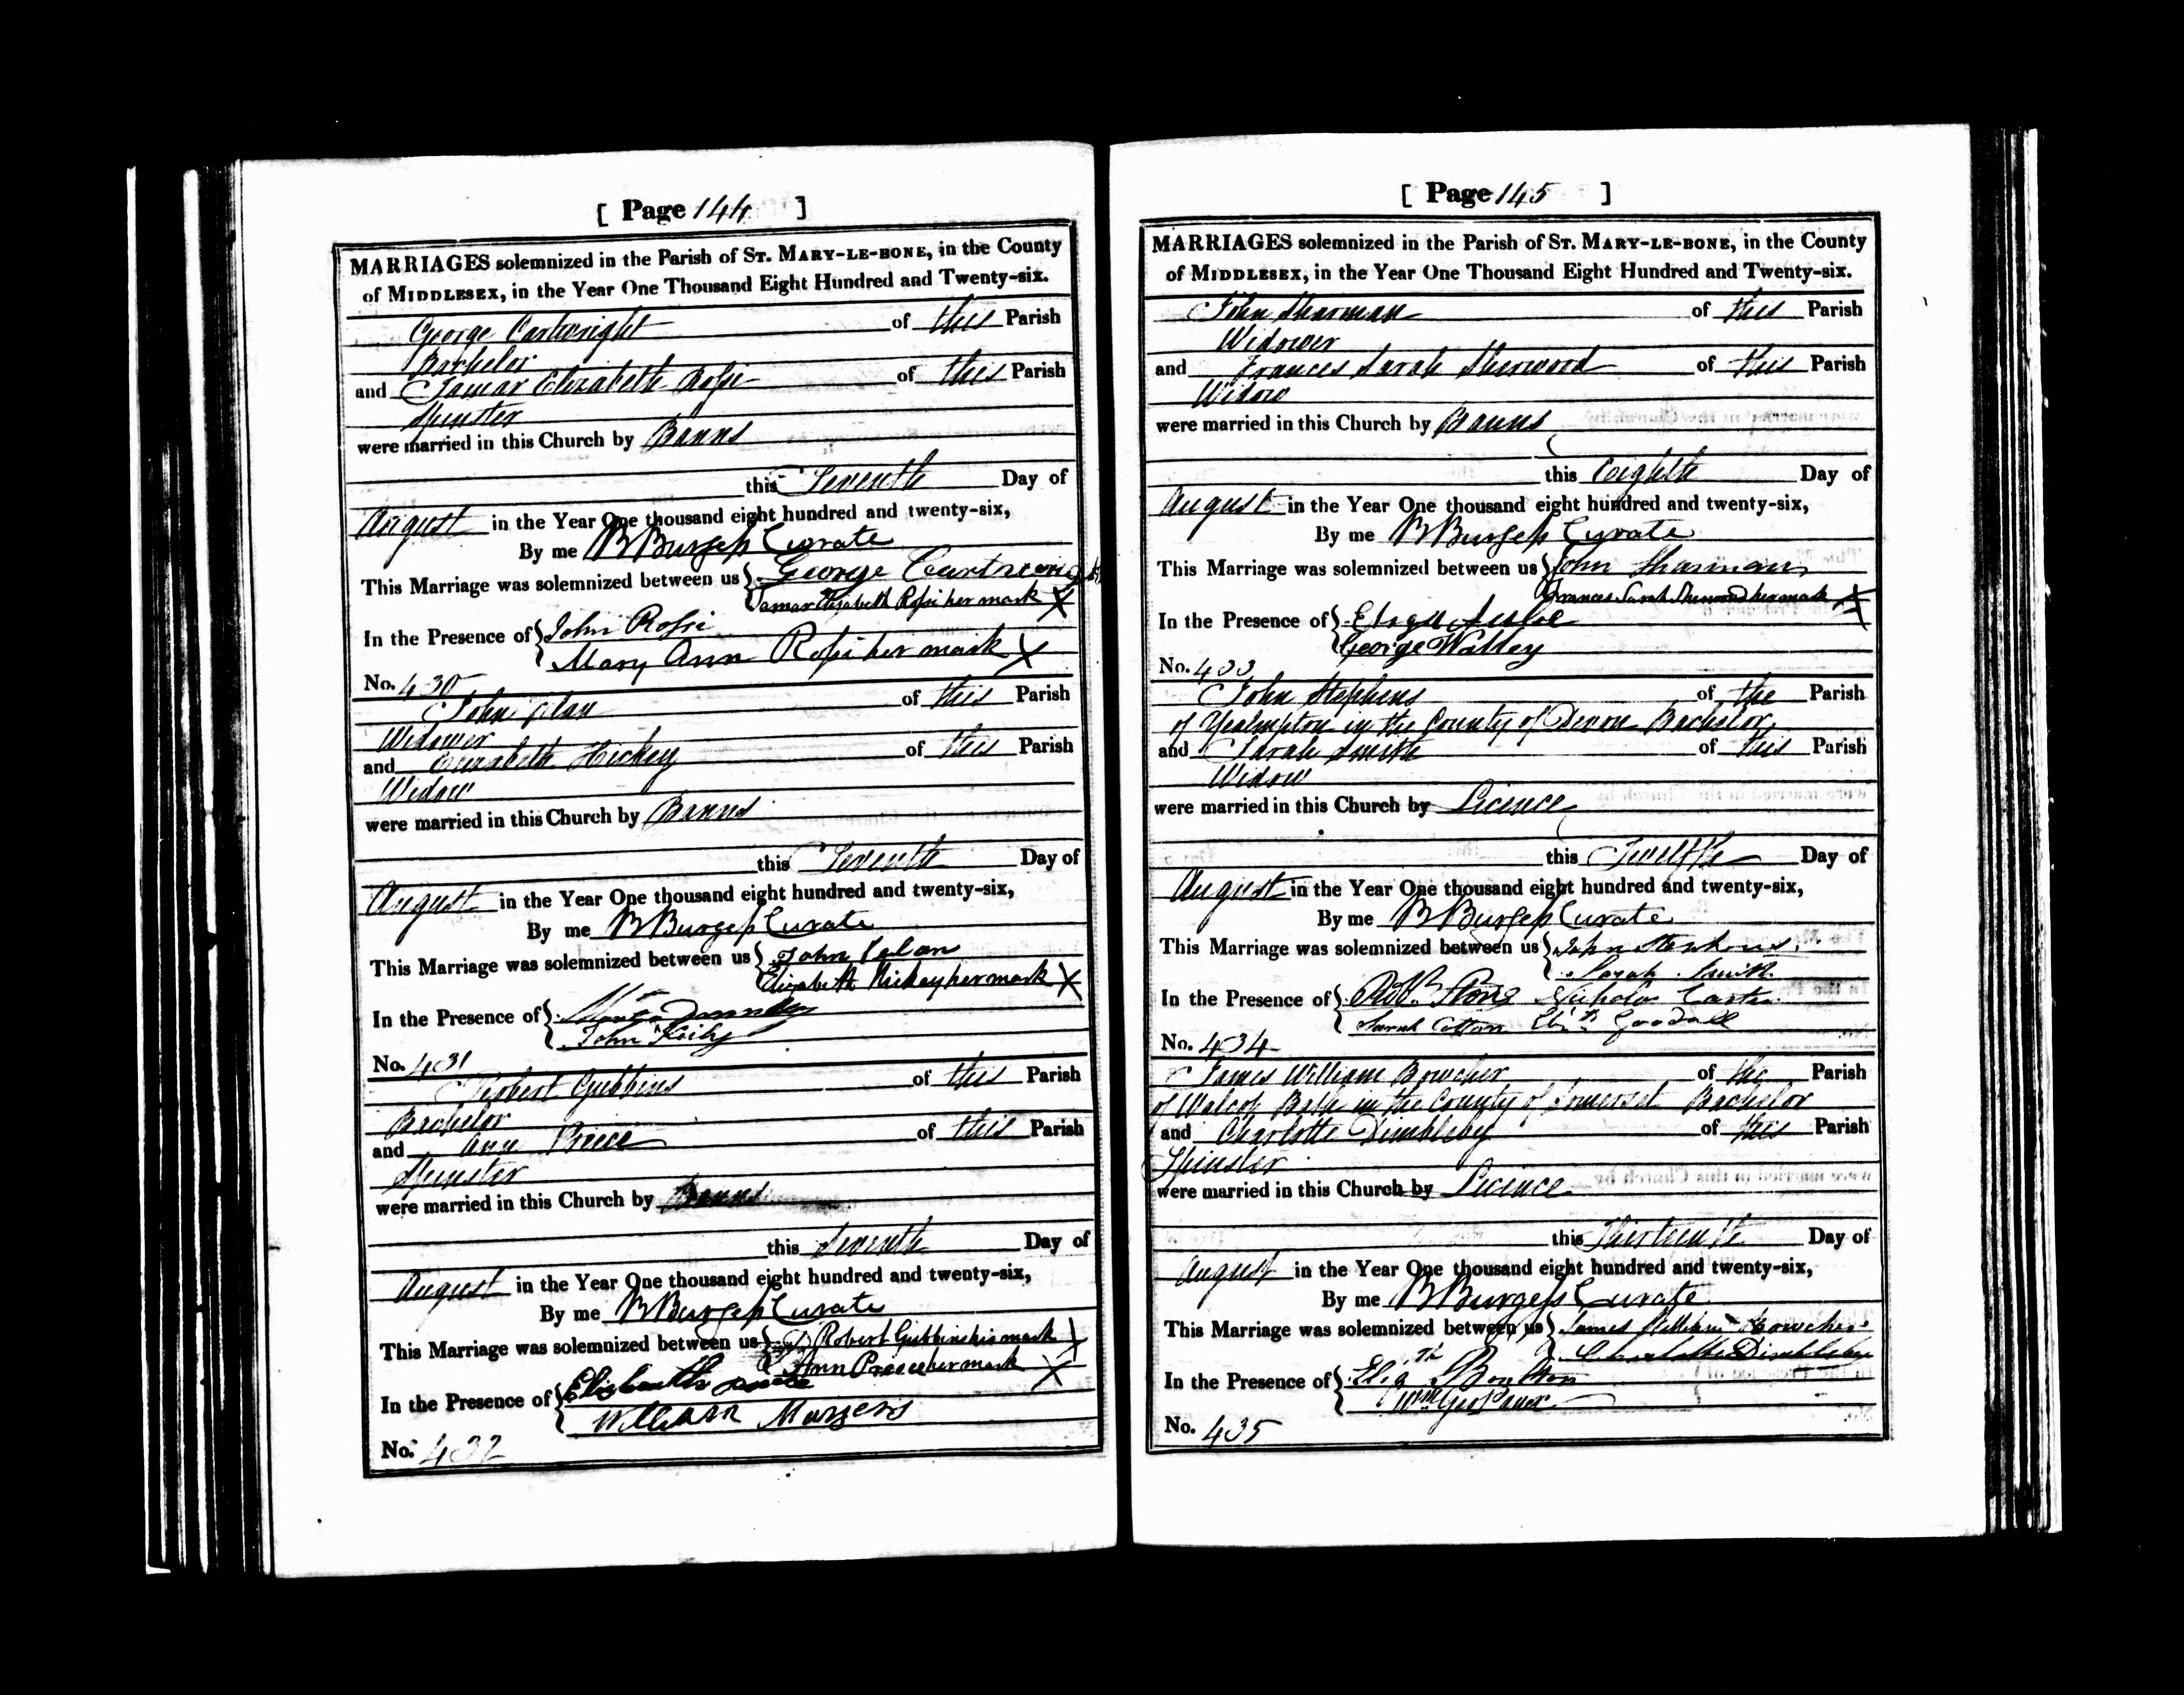 [ Page 144 ]
MARRIAGES solemnized in the Parish of ST. MARY-LE-BONE, in the County
of MIDDLESEX, in the Year One Thousand Eight Hundred and Twenty-six.
George Cartwright of this Parish
Bachelor
and Tamar Elizabeth Rossi of this Parish
Spinster
were married in this Church by Banns
this Seventh Day of
August in the Year One thousand eight hundred and twenty-six,
By me B Burgess Curate
This Marriage was solemnized between us George Cartwright
Tamar Elizabeth Rossi her mark X
In the Presence of John Rossi
Mary Ann Rossi her mark X
No. 430
John of this Parish
Widower
and Elizabeth Hickey of this Parish
Widow
were married in this Church by Banns
this Seventh Day of
August in the Year One thousand eight hundred and twenty-six,
By me B Burgess Curate
This Marriage was solemnized between us John
Elizabeth Hickey her mark X
In the Presence of
John Kirby
No. 431
Robert Gubbins of this Parish
Bachelor
and Ann Preece of this Parish
Spinster
were married in this Church by Banns
this Seventh Day of
August in the Year One thousand eight hundred and twenty-six,
By me B Burgess Curate
This Marriage was solemnized between us Robert Gubbins his mark X
Ann Preece her mark X
In the Presence of Elizabeth
William
No. 432
[ Page 145 ]
MARRIAGES solemnized in the Parish of ST. MARY-LE-BONE, in the County
of MIDDLESEX, in the Year One Thousand Eight Hundred and Twenty-six.
John Sharman of this Parish
Widower
and Frances Sarah Sherwood of this Parish
Widow
were married in this Church by Banns
this Eighth Day of
August in the Year One thousand eight hundred and twenty-six,
By me B Burgess Curate
This Marriage was solemnized between us John Sharman
Frances Sarah Sherwood her mark X
In the Presence of
George
No. 433
John Stephens of the Parish
of Yealmpton in the County of Devon Bachelor
and Sarah Smith of this Parish
Widow
were married in this Church by Licence
this Twelfth Day of
August in the Year One thousand eight hundred and twenty-six,
By me B Burgess Curate
This Marriage was solemnized between us John Stephens
Sarah Smith
In the Presence of Nicholas
Sarah Cotton Goodall
No. 434
James William Bowcher of the Parish
of Walcot Bath in the County of Somerset Bachelor
and Charlotte Dimbleby of this Parish
Spinster
were married in this Church by Licence
this Thirteenth Day of
August in the Year One thousand eight hundred and twenty-six,
By me B Burgess Curate
This Marriage was solemnized between us James William Bowcher
Charlotte Dimbleby
In the Presence of Eliz.th Boulton
Wm Geo
No. 435